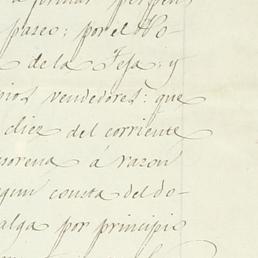 paseo; por el No-
de de la Tesa; y
pios vendedores: que
diez del corriente
morena á razon
egun consta del do-
alga por principio